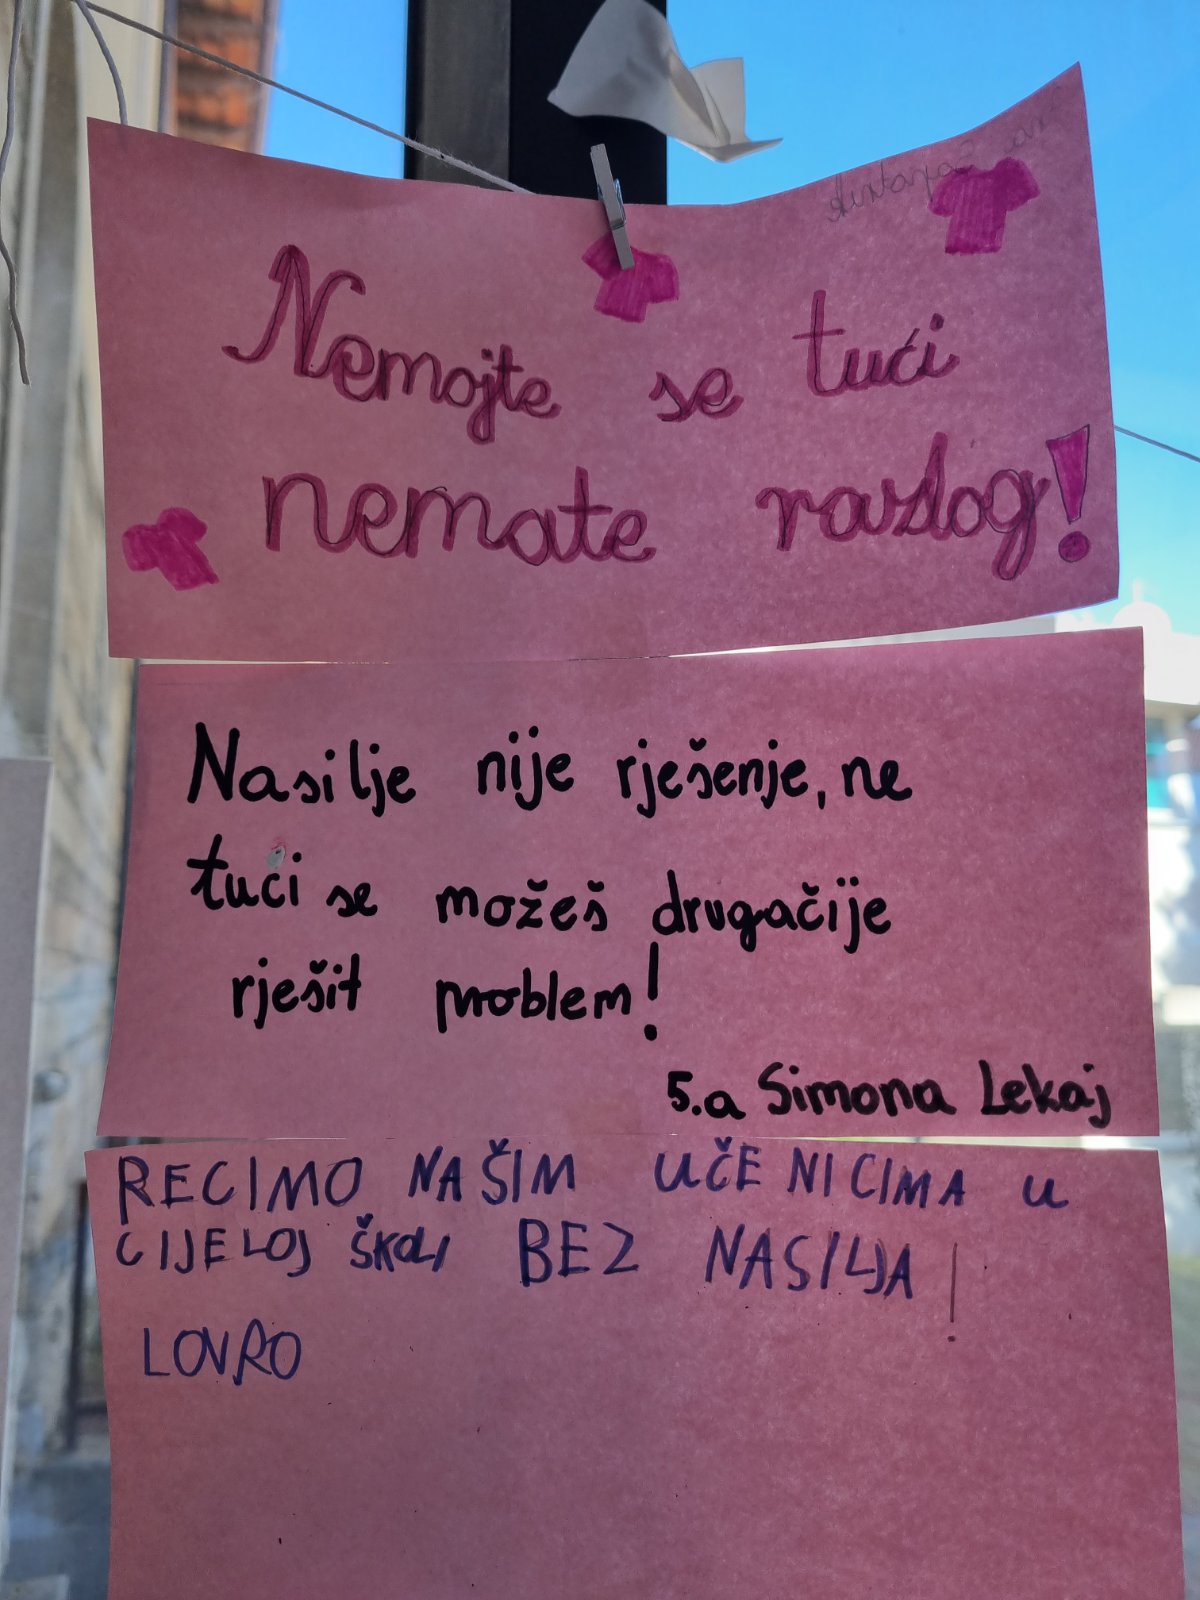 Nemojte se tući
nemate razlog!
Nasilje nije rješenje, ne
tući se možeš drugačije
rješit problem!
5.a Simona Lekaj
RECIMO NAŠIM UČENICIMA U
CIJELOJ ŠKOLI BEZ NASILJA!
LOVRO